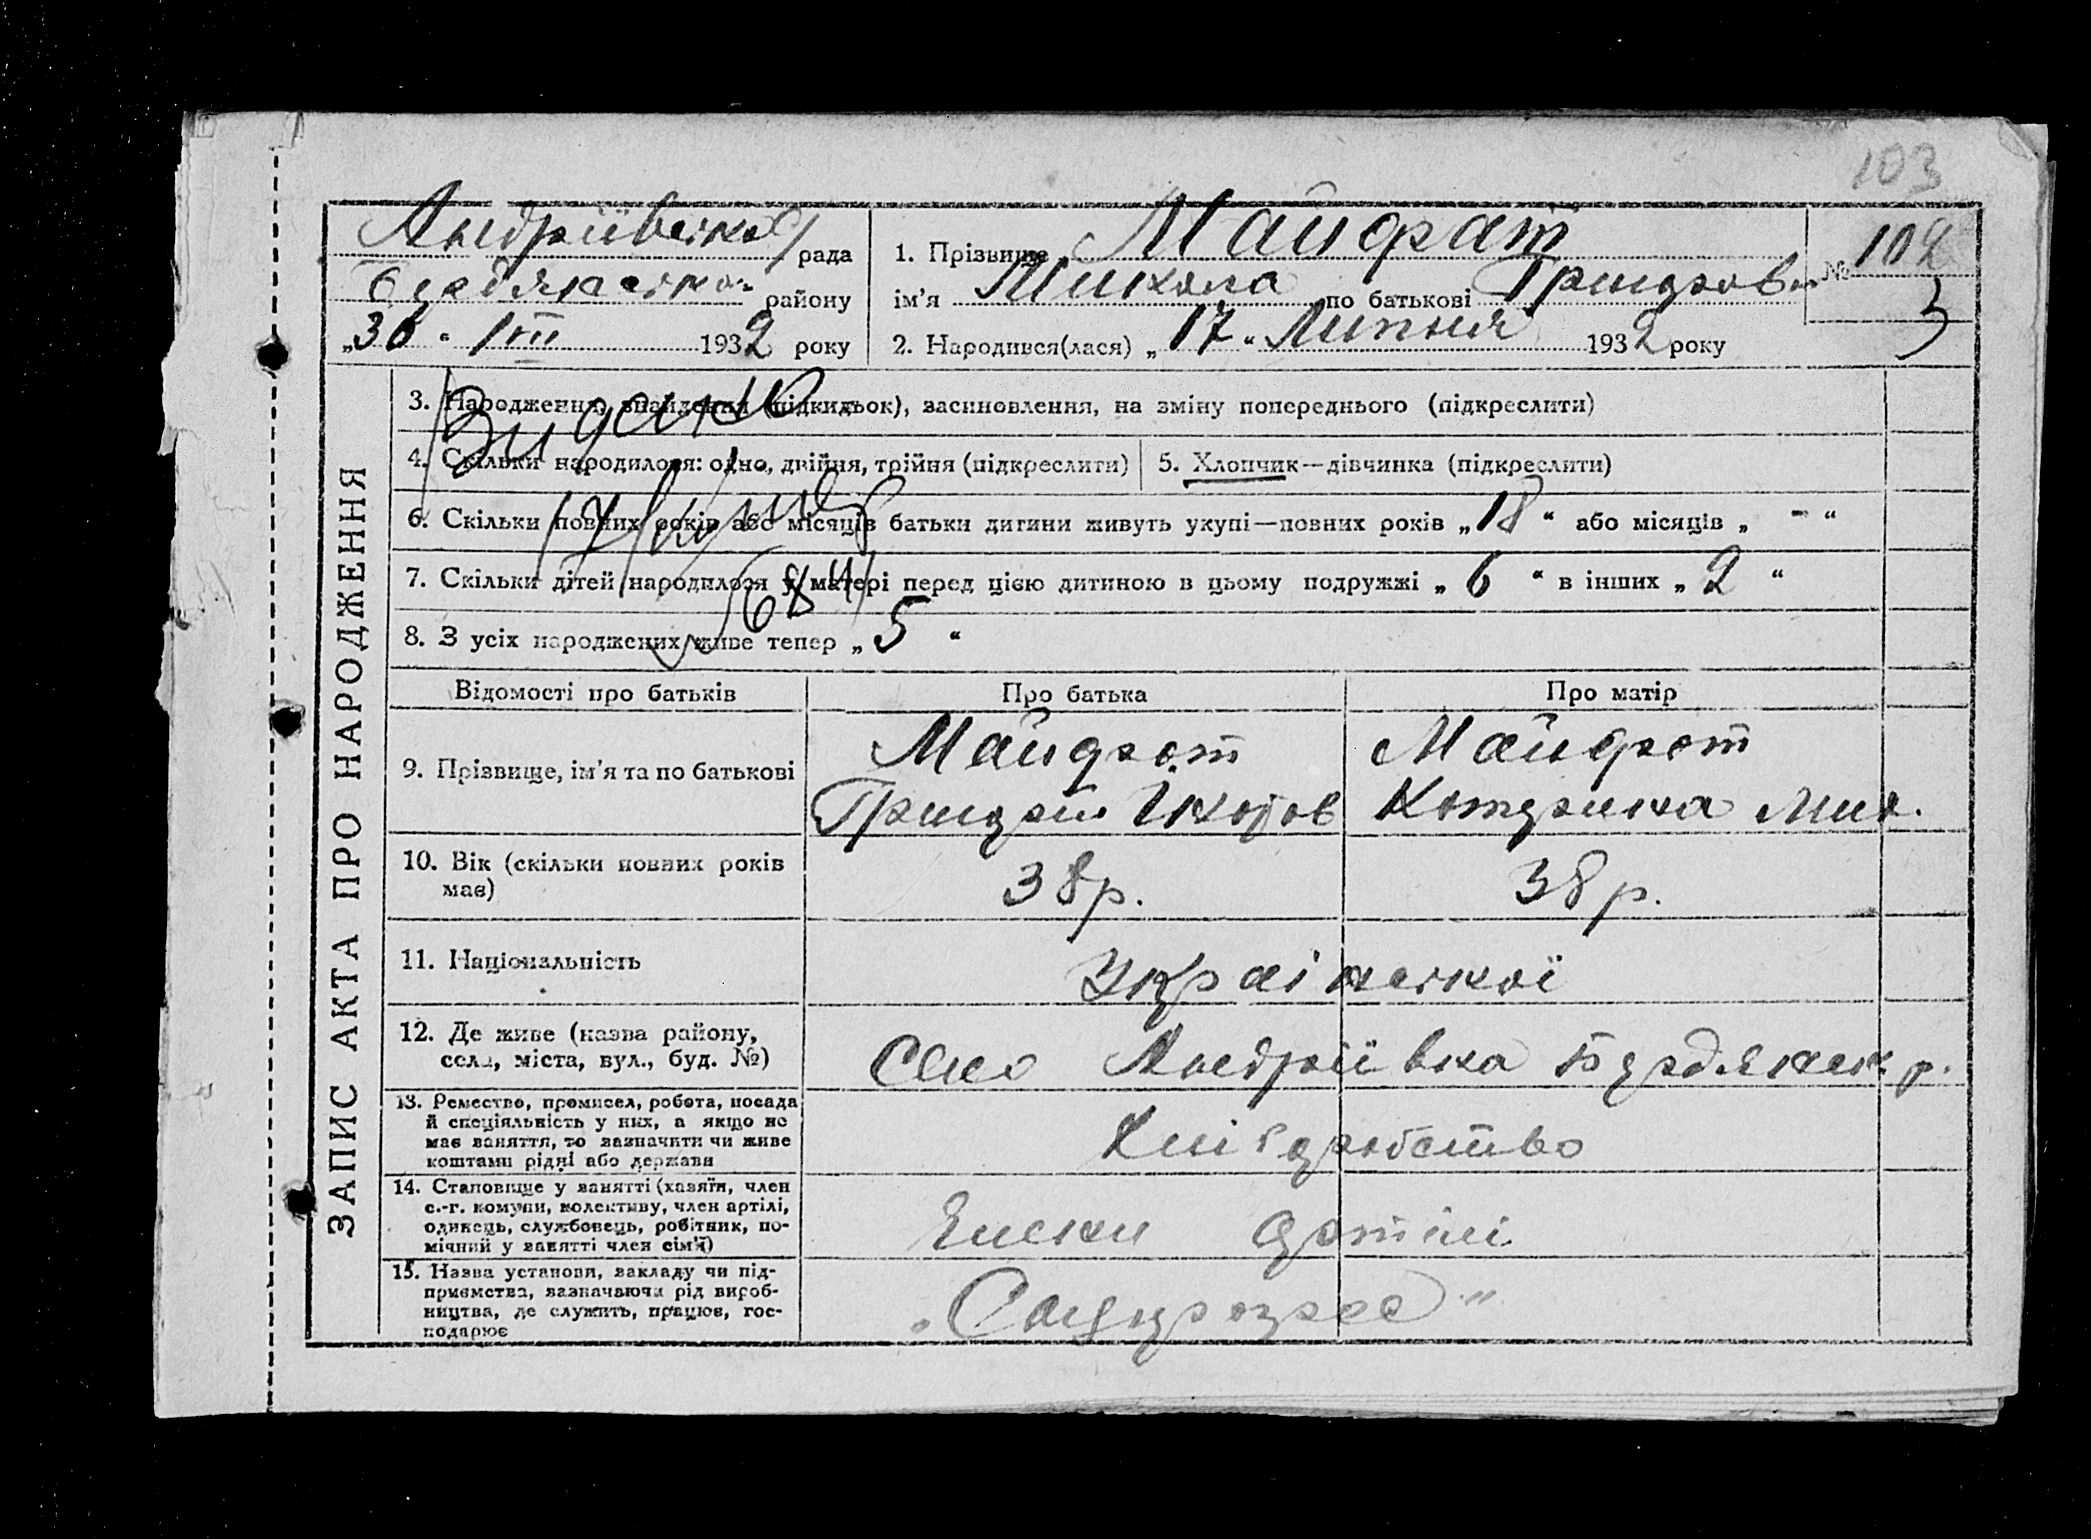 103
Андріївської рада
Бердянського району
„30" VIII 1932 року
1. Прізвище Майфат
ім'я Микола по батькові Григоров.
№ 102
3
2. Народився(лася) „17" Липня 1932 року
ЗАПИС АКТА ПРО НАРОДЖЕННЯ
3. Народження, знайдення (підкидьок), засиновлення, на зміну попереднього (підкреслити)
4. Скільки народилося: одно, двійня, трійня (підкреслити)
5. Хлопчик—дівчинка (підкреслити)
6. Скільки повних років або місяців батьки дитини живуть укупі—повних років „18" або місяців „ - "
7. Скільки дітей народилося у матері перед цією дитиною в цьому подружжі „6" в інших „2"
8. З усіх народжених живе тепер „5"
Відомості про батьків
Про батька
Про матір
9. Прізвище, ім'я та по батькові
Майфат
Григорій
Майфат
Катерина Мик.
10. Вік (скільки повних років
має)
38 р.
38 р.
11. Національність
Української
12. Де живе (назва району,
села, міста, вул., буд. №)
Село Андріївка Бердянськ. р.
13. Ремество, промисел, робота, посада
й спеціяльність у них, а якщо не
має заняття, то зазначити чи живе
коштами рідні або держави
Хліборобство
14. Становище у занятті (хазяїн, член
с.-г. комуни, колективу, член артілі,
одинець, службовець, робітник, по-
мічний у занятті член сім'ї)
Члени артілі
15. Назва установи, закладу чи під-
приємства, зазначаючи рід вироб-
ництва, де служить, працює, гос-
подарює